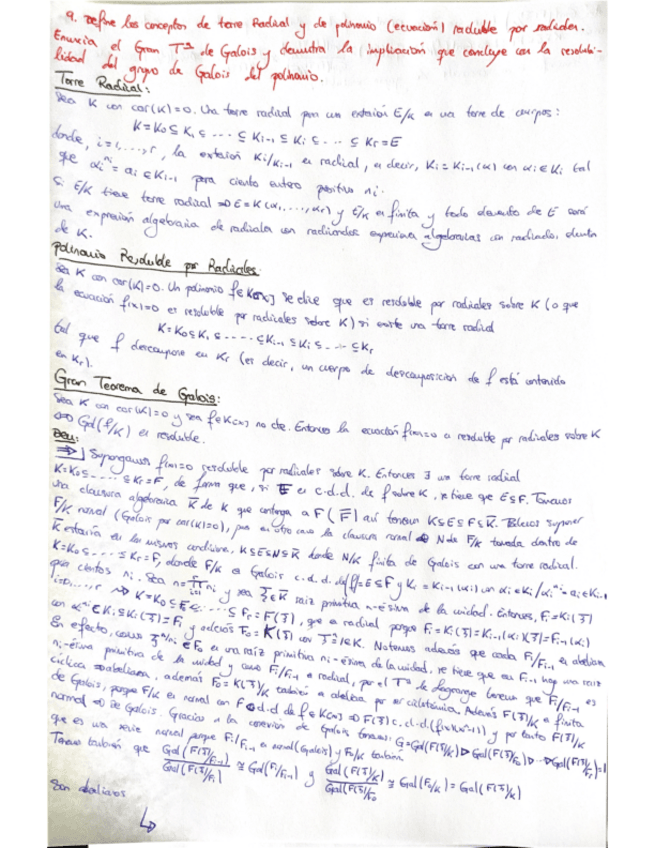 9. Define los conceptos de torre Radical y de polinomio (ecuación) resoluble por radicales.
Enuncia el Gran Tª de Galois y demuestra la implicación que concluye con la resolubi-
lidad del grupo de Galois del polinomio.
Torre Radical:
Sea K con car(K)=0. Una torre radical para un extensión E/K es una torre de cuerpos:
K=K₀⊆K₁⊆ ⋯ ⊆K_{i-1}⊆K_i⊆ ⋯ ⊆K_r=E
donde, i=1,...,r, la extensión K_i/K_{i-1} es radical, es decir, K_i=K_{i-1}(α) con α_i∈K_i tal
que α_i^{n_i}=a_i∈K_{i-1} para cierto entero positivo n_i.
Si E/K tiene torre radical ⇒ E=K(α₁,...,α_r) y E/K es finita y todo elemento de E será
una expresión algebraica de radicales con radicandos expresiones algebraicas con radicando, dentro
de K.
Polinomio Resoluble por Radicales
Sea K con car(K)=0. Un polinomio f∈K[x] se dice que es resoluble por radicales sobre K (o que
la ecuación f(x)=0 es resoluble por radicales sobre K) si existe una torre radical
K=K₀⊆K₁⊆ ⋯ ⊆K_{i-1}⊆K_i⊆ ⋯ ⊆K_r
tal que f descompone en K_r (es decir, un cuerpo de descomposición de f está contenido
en K_r).
Gran Teorema de Galois:
Sea K con car(K)=0 y sea f∈K[x] no cte. Entonces la ecuación f(x)=0 es resoluble por radicales sobre K
⇔ Gal(f/K) es resoluble.
Dem:
⇒] Supongamos f(x)=0 resoluble por radicales sobre K. Entonces ∃ una torre radical
K=K₀⊆ ⋯ ⊆K_r=F, de forma que, si E es c.d.d. de f sobre K, se tiene que E⊆F. Tomamos
una clausura algebraica K̄ de K que contenga a F (F̄) así tenemos K⊆E⊆F⊆K̄. Podemos suponer
F/K normal (Galois por car(K)=0), pues en otro caso la clausura normal N de F/K tomada dentro de
K̄ estaría en las mismas condiciones, K⊆E⊆N⊆K̄ donde N/K finita de Galois con una torre radical.
K=K₀⊆ ⋯ ⊆K_r=F, donde F/K es Galois c.d.d. de f, E⊆F y K_i=K_{i-1}(α_i) con α_i∈K_i / α_i^{n_i}=a_i∈K_{i-1}
para ciertos n_i. Sea n=∏n_i y sea ξ∈K̄ raíz primitiva n-ésima de la unidad. Entonces, F_i=K_i(ξ)
i=0,...,r ⇝ K=K₀⊆F₀⊆ ⋯ ⊆F_r=F(ξ), que es radical porque F_i=K_i(ξ)=K_{i-1}(α_i)(ξ)=F_{i-1}(α_i)
con α_i^{n_i}∈K_{i-1}⊆K_{i-1}(ξ)=F_{i-1} y además F₀=K(ξ) con ξⁿ=1∈K. Notemos además que cada F_i/F_{i-1} es abeliana
En efecto, como ξ^{n/n_i}∈F₀ es una raíz primitiva n_i-ésima de la unidad, se tiene que en F_{i-1} hay una raíz
n_i-ésima primitiva de la unidad y como F_i/F_{i-1} es radical, por el Tª de Lagrange tenemos que F_i/F_{i-1} es
cíclica ⇒ abeliana, además F₀=K(ξ)/K también es abeliana por ser ciclotómica. Además F(ξ)/K es finita
de Galois, porque F/K es normal con F c.d.d de f∈K[x] ⇒ F(ξ) c.d.d.(f(x)(xⁿ-1)) y por tanto F(ξ)/K
normal ⇒ de Galois. Gracias a la conexión de Galois tenemos: G=Gal(F(ξ)/K)▷Gal(F(ξ)/F₀)▷⋯▷Gal(F(ξ)/F_r)=1
que es una serie normal porque F_i/F_{i-1} es normal (Galois) y F₀/K también
Tenemos también que Gal(F(ξ)/F_{i-1})/Gal(F(ξ)/F_i) ≅ Gal(F_i/F_{i-1}) y Gal(F(ξ)/K)/Gal(F(ξ)/F₀) ≅ Gal(F₀/K)=Gal(K(ξ)/K)
Son abelianos